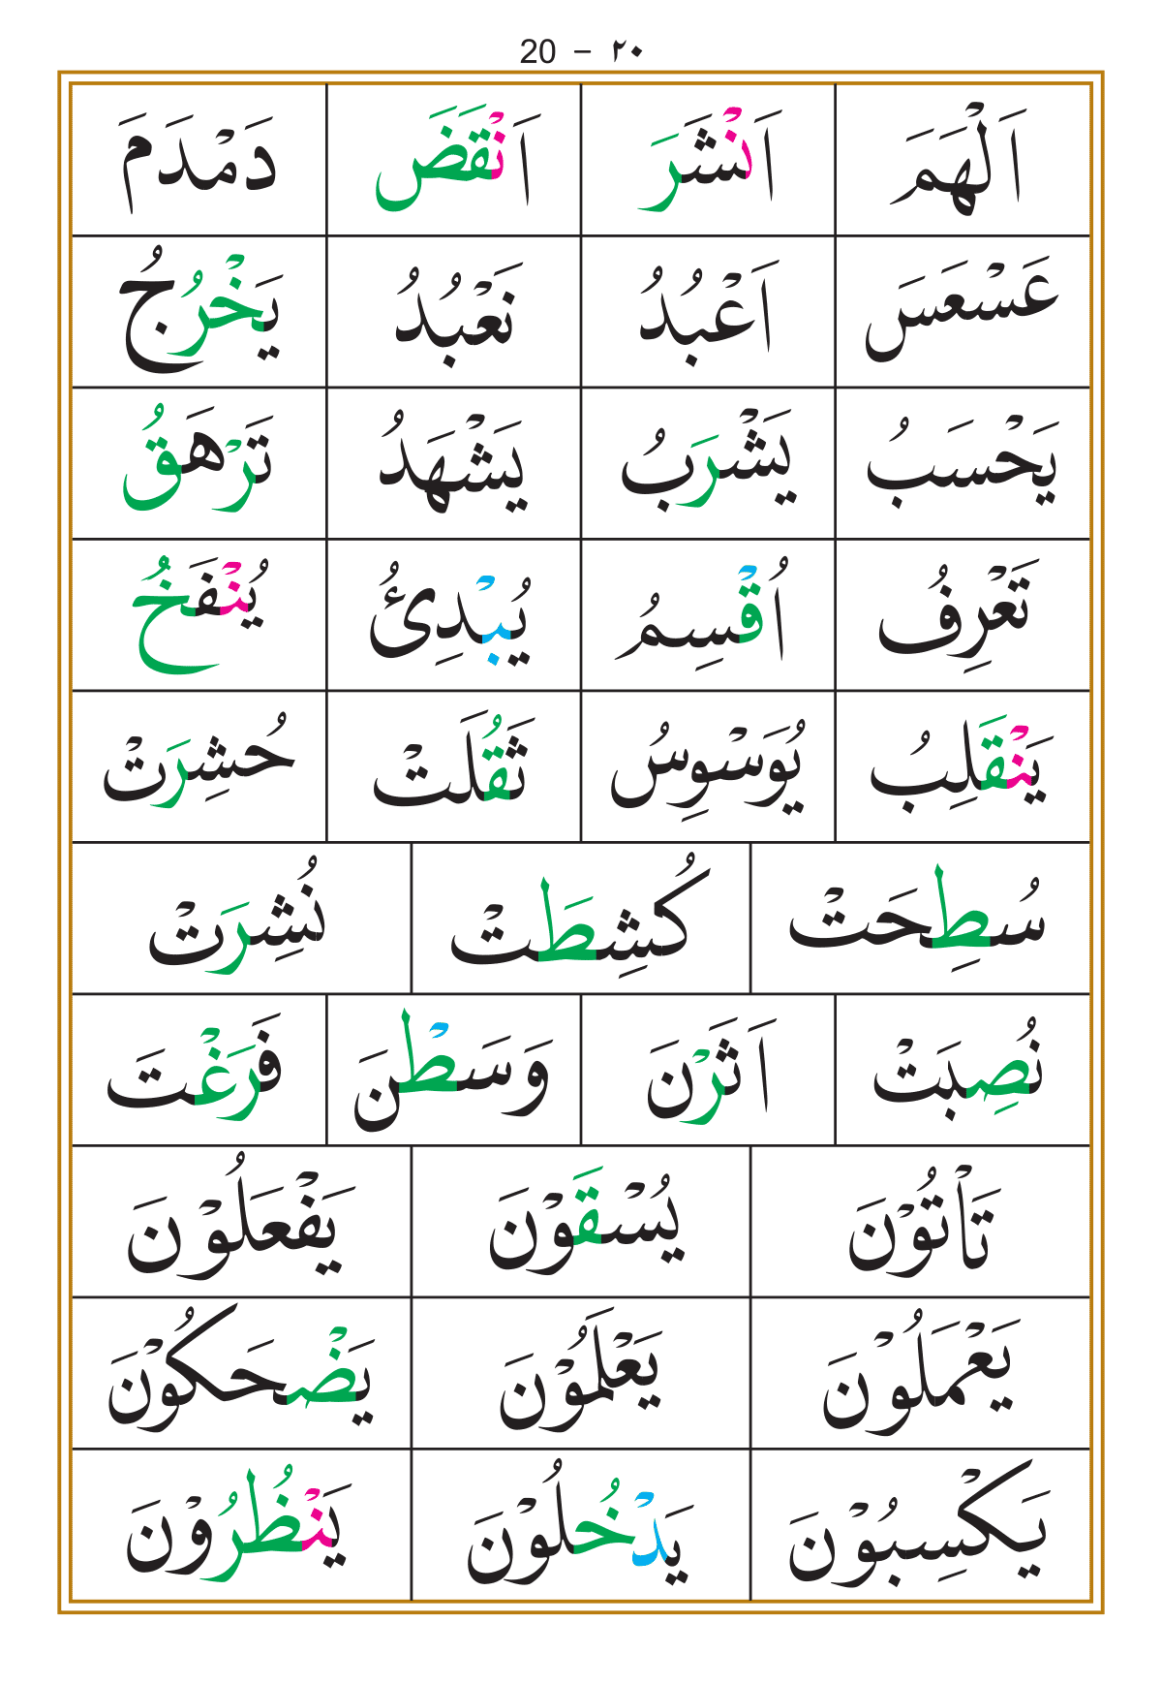 20 – ٢٠
اَلْهَمَ اَنْشَرَ اَنْقَضَ دَمْدَمَ
عَسْعَسَ اَعْبُدُ نَعْبُدُ يَخْرُجُ
يَحْسَبُ يَشْرَبُ يَشْهَدُ تَرْهَقُ
تَعْرِفُ اُقْسِمُ يُبْدِئُ يُنْفَخُ
يَنْقَلِبُ يُوَسْوِسُ ثَقُلَتْ حُشِرَتْ
سُطِحَتْ كُشِطَتْ نُشِرَتْ
نُصِبَتْ اَثَرْنَ وَسَطْنَ فَرَغْتَ
تَأْتُوْنَ يُسْقَوْنَ يَفْعَلُوْنَ
يَعْمَلُوْنَ يَعْلَمُوْنَ يَضْحَكُوْنَ
يَكْسِبُوْنَ يَدْخُلُوْنَ يَنْظُرُوْنَ